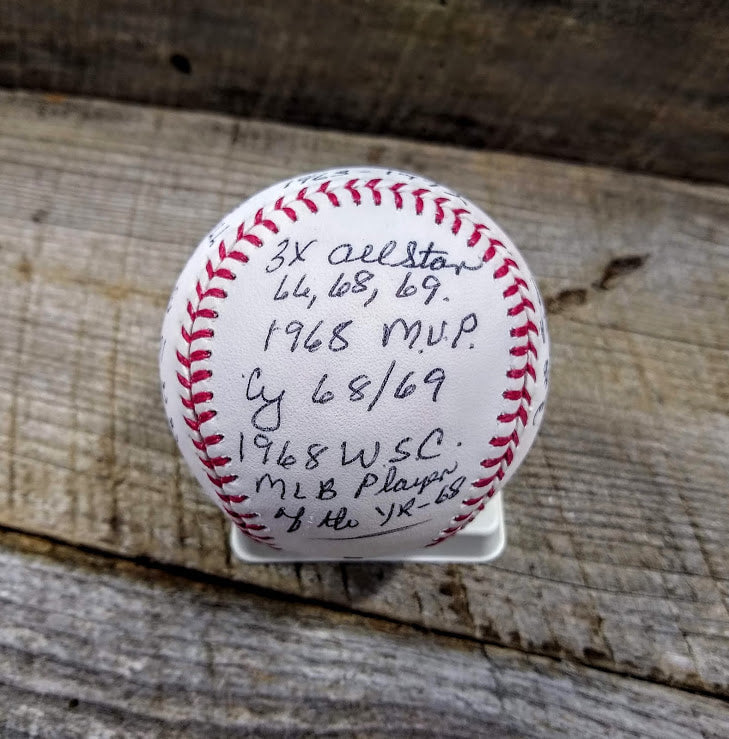 1963
3X All Star
66, 68, 69.
1968 M.V.P.
Cy 68/69
1968 W.S.C.
MLB Player
of the YR-68